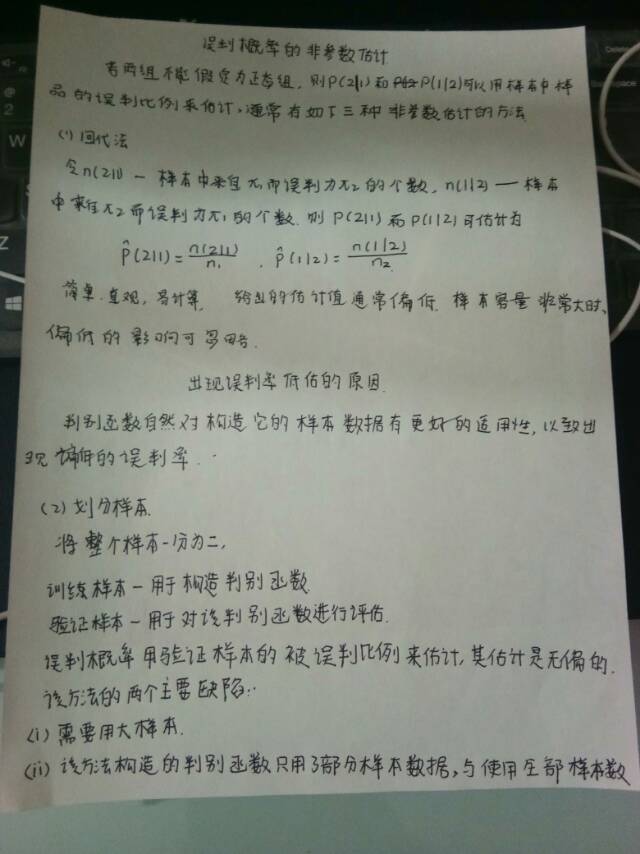 误判概率的非参数估计
若两组不能假定为正态组，则P(2|1)和P(1|2)可以用样本中样
品的误判比例来估计，通常有如下三种非参数估计的方法
(1) 回代法
令n(2|1) — 样本中来自π₁而误判为π₂的个数，n(1|2) — 样本
中来自π₂而误判为π₁的个数. 则P(2|1)和P(1|2)可估计为
P̂(2|1) = n(2|1)/n₁ , P̂(1|2) = n(1|2)/n₂
简单.直观，易计算. 给出的估计值通常偏低. 样本容量非常大时、
偏低的影响可忽略.
出现误判率低估的原因.
判别函数自然对构造它的样本数据有更好的适用性，以致出
现偏低的误判率.
(2) 划分样本.
将整个样本一分为二，
训练样本 — 用于构造判别函数
验证样本 — 用于对该判别函数进行评估.
误判概率用验证样本的被误判比例来估计，其估计是无偏的.
该方法的两个主要缺陷：
(i) 需要用大样本.
(ii) 该方法构造的判别函数只用了部分样本数据，与使用全部样本数